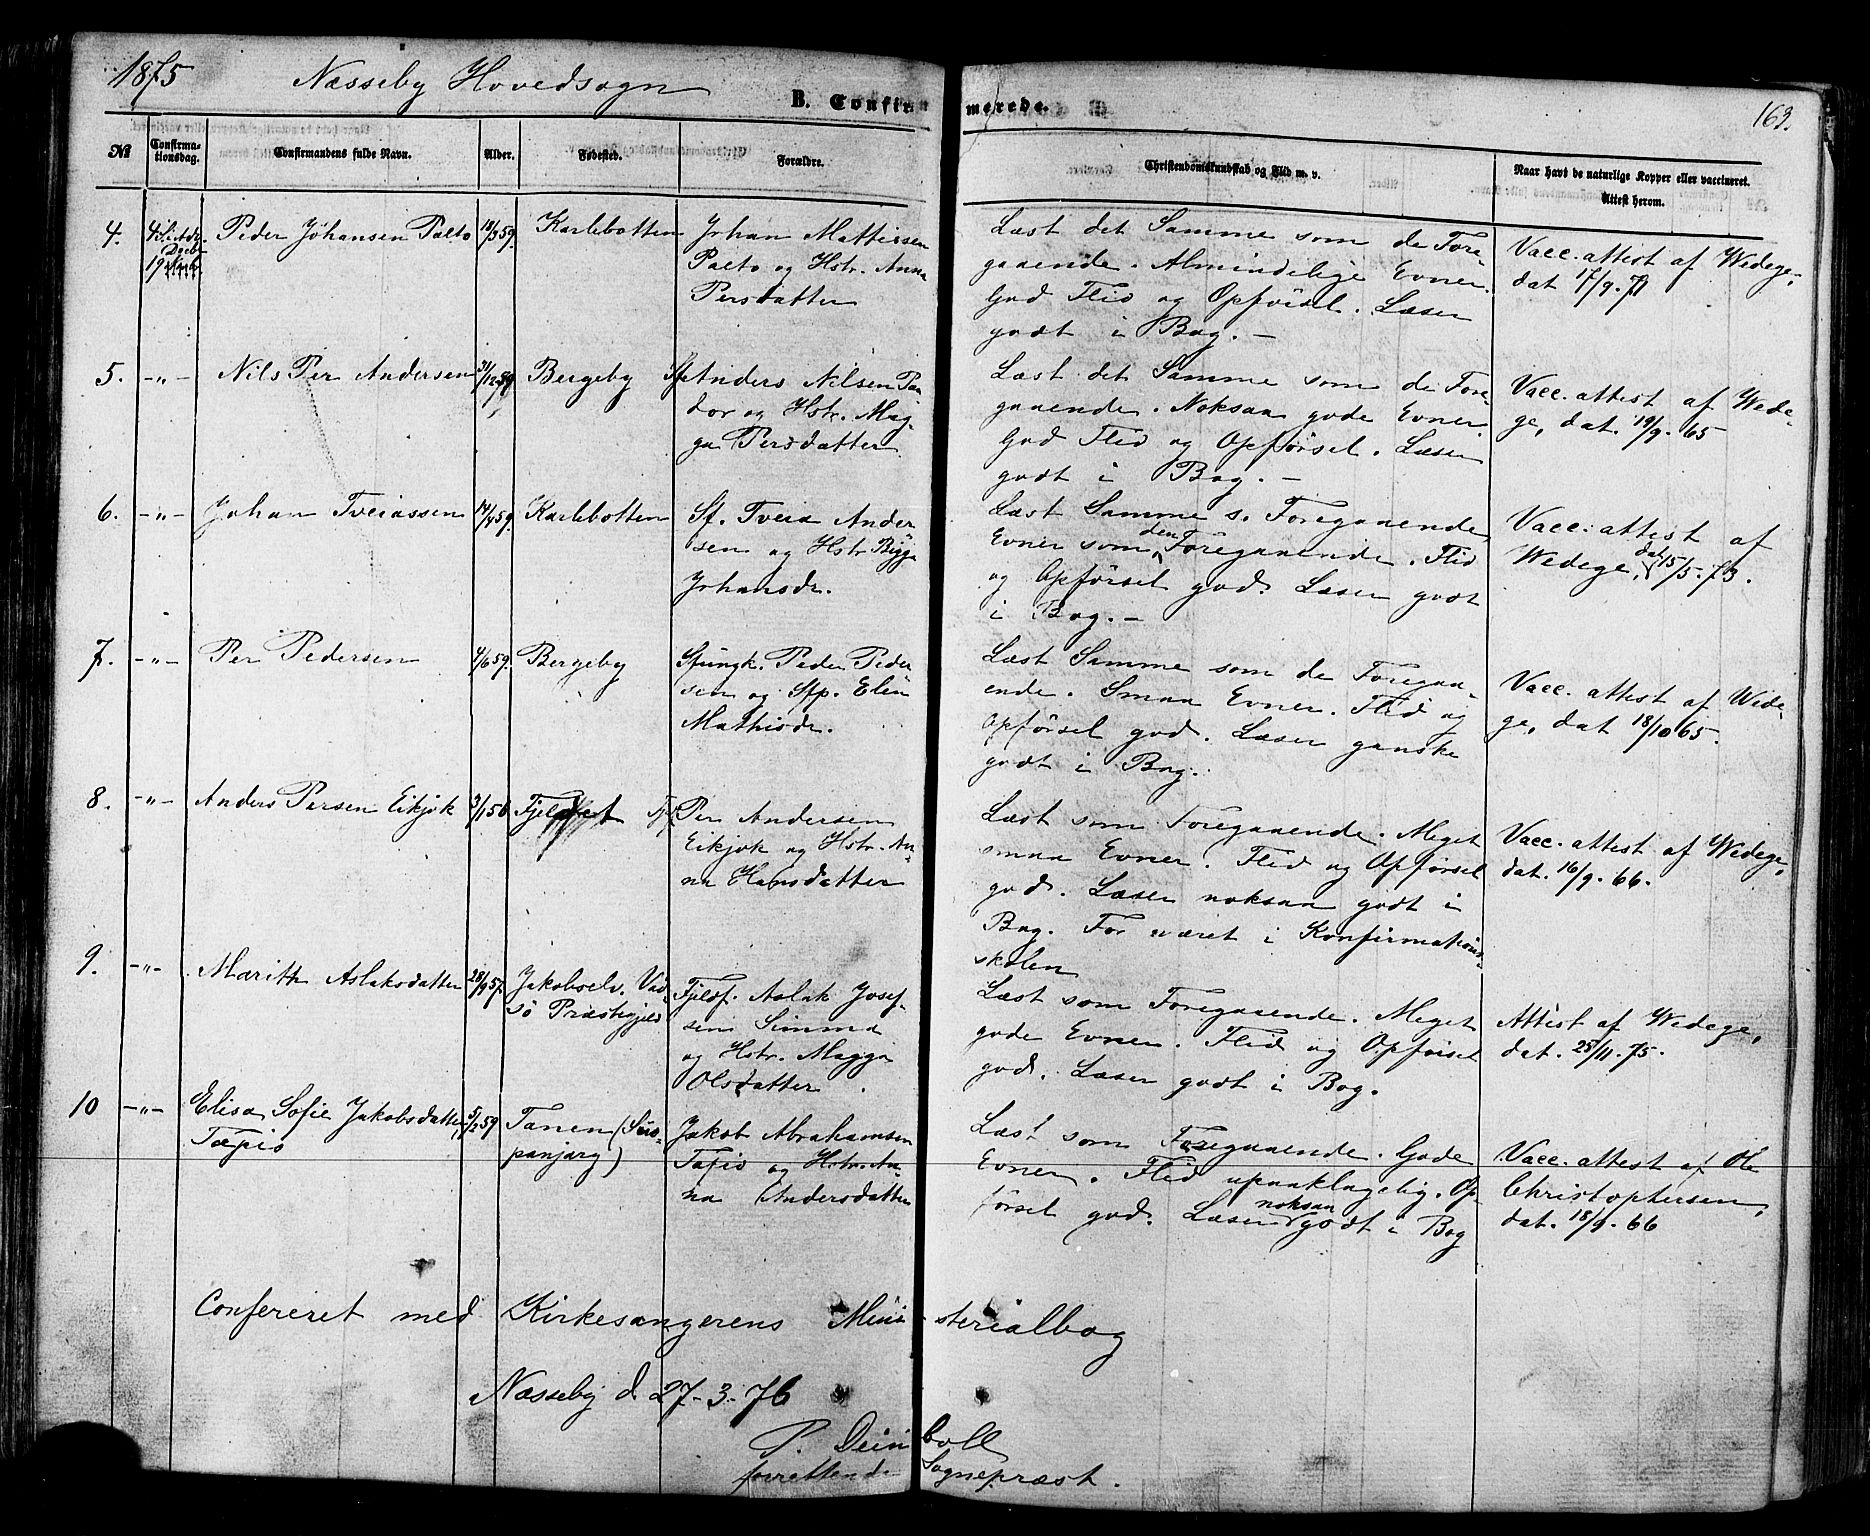 1875 Næsseby Hovedsogn
B. Confirmerede.
163.
№
Confirmationsdag.
Confirmandens fulde Navn.
Alder.
Fødested.
Forældre.
Christendomskundskab og Flid m. v.
Naar havt de naturlige Kopper eller vaccineret.
Attest herom.
4.
4 S. i Adv.
Dceb.
19
Peder Johansen Palto
18/3 59.
Karlebotten
Johan Mathissen
Palto og Hstr. Anna
Persdatter
Læst det Samme som de Fore-
gaaende. Almindelige Evner.
God Flid og Opførsel. Læser
godt i Bog. –
Vacc. attest af Wedege,
dat 17/9. 71
5.
–"–
Nils Per Andersen
31/12 59
Bergeby
Anders Nilsen Pa-
dor og Hstr. Mag-
ga Persdatter
Læst det Samme som de Fore-
gaaende. Noksaa gode Evner.
God Flid og Opførsel. Læser
godt i Bog. –
Vacc. attest af Wede-
ge, dat. 19/9. 65
6.
–"–
Johan Tveiassen
14/8 59.
Karlebotten
Sf. Tveia Ander
sen og Hstr. Bigga
Johansdr.
Læst Samme s. Foregaaende
Evner som den Foregaaende. Flid
og Opførsel god. Læser godt
i Bog. –
Vacc. attest af
Wedege, dat 15/5. 73.
7.
–"–
Per Pedersen
4/6 59.
Bergeby
Sfungk. Peder Peder
sen og Sfp. Elen
Mathisdr.
Læst Samme som de Foregaa-
ende. Smaa Evner. Flid og
Opførsel god. Læser ganske
godt i Bog.
Vacc. attest af Wede-
ge, dat 18/10 65.
8.
–"–
Anders Persen Eikjok
3/1 56
Fjeldet
Fjf. Per Andersen
Eikjok og Hstr. An-
na Hansdatter
Læst som Foregaaende. Meget
smaa Evner. Flid og Opførsel
god. Læser noksaa godt i
Bog. Før været i Konfirmations-
skolen
Vacc. attest af Wedege,
dat. 16/9. 66.
9.
–"–
Marith Aslaksdatter
28/9 57.
Jakobselv. Vad-
sö Præstegjeld
Fjeldf. Aslak Josef-
sen Simma
og Hstr. Magga
Olsdatter.
Læst som Foregaaende. Meget
gode Evner. Flid og Opførsel
god. Læser godt i Bog.
Attest af Wedege,
dat. 25/11. 75.
10
–"–
Elisa Sofie Jakobsdatter
Tapio
5/2 59
Tanen (Sus-
panjarg)
Jakob Abrahamsen
Tapio og Hstr. An-
na Andersdatter
Læst som Foregaaende. Gode
Evner. Flid upaaklagelig. Op-
førsel god. Læser noksaa godt i Bog
Vacc. attest af Ole
Christophersen,
dat. 18/9. 66
Confereret med Kirkesangerens Ministerialbog
Næsseby d 27-3-76
P. Deinboll
forrettende Sognepræst.